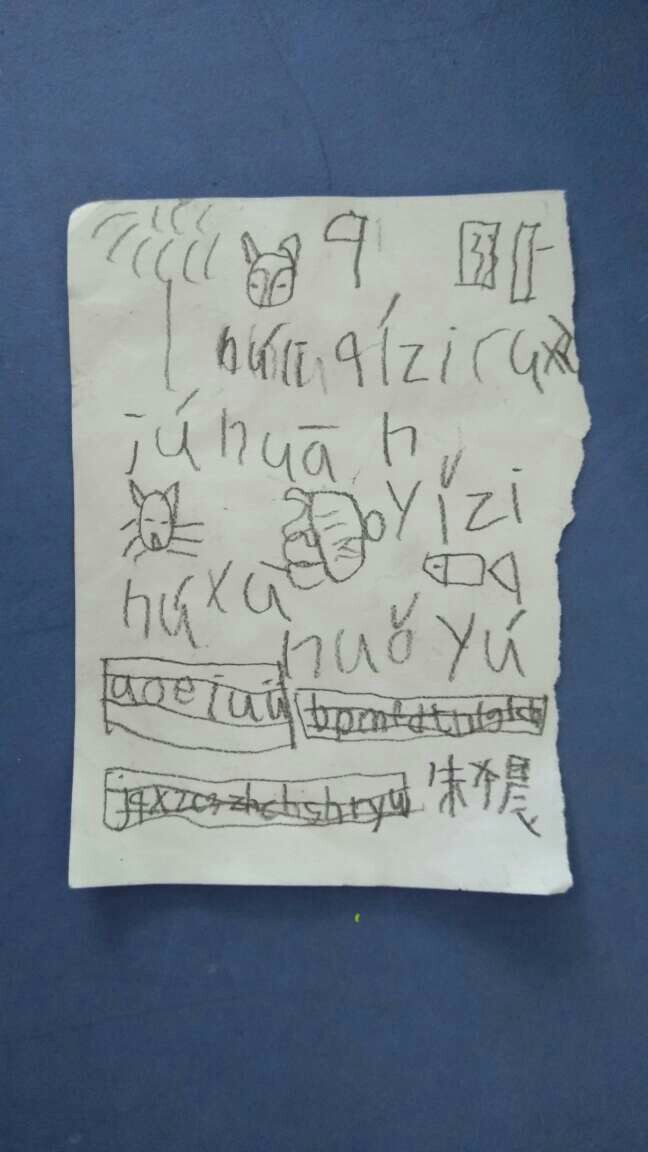 q
qízi
júhuā h
yǐzi
húxū
huǒ yú
aoeiuü bpmfdtnlgkh
jqxzcszhchshryw
朱